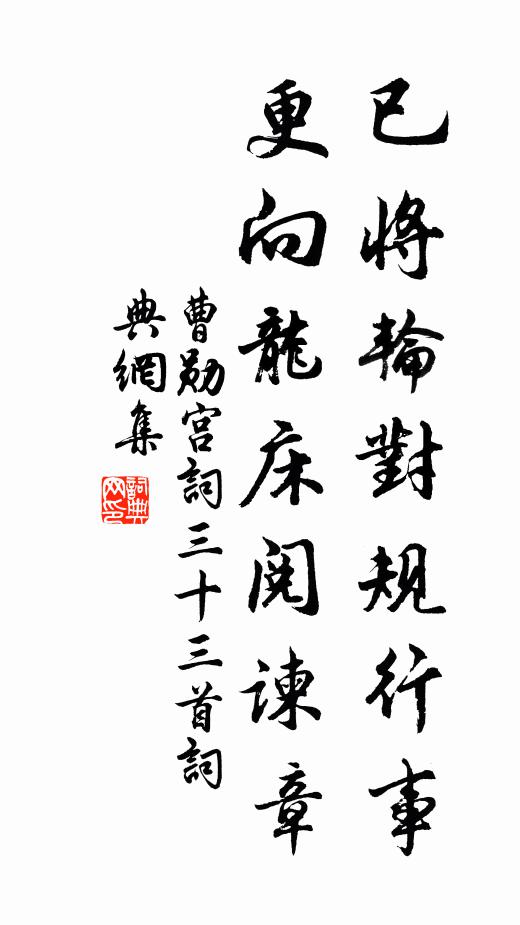 已將輪對規行事
更向龍床閱諫章
曹勛宮詞三十三首詞
典網集
詞典
网印